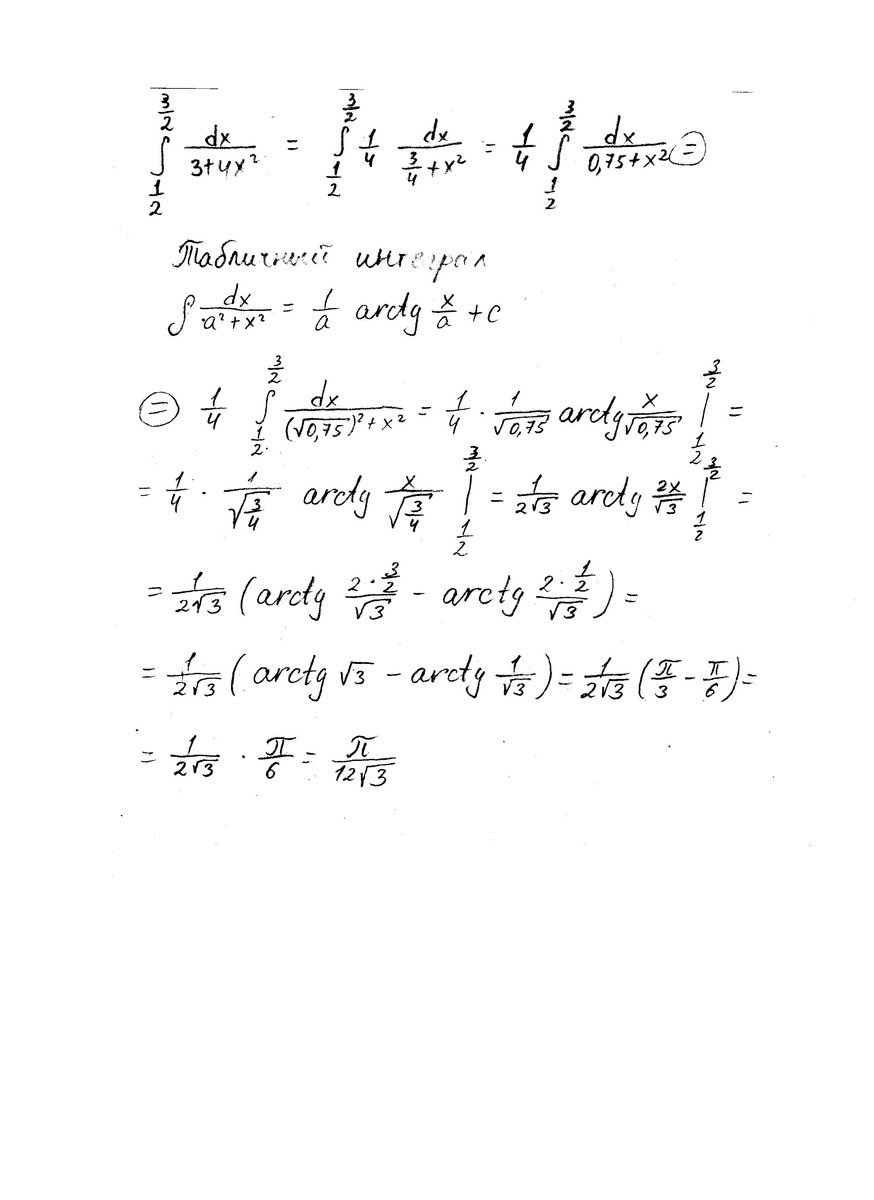 ∫_{1/2}^{3/2} dx/(3+4x²) = ∫_{1/2}^{3/2} 1/4 dx/(3/4+x²) = 1/4 ∫_{1/2}^{3/2} dx/(0,75+x²) ⊜
Табличный интеграл
∫ dx/(a²+x²) = 1/a arctg x/a + c
⊜ 1/4 ∫_{1/2}^{3/2} dx/((√0,75)²+x²) = 1/4 · 1/√0,75 arctg x/√0,75 |_{1/2}^{3/2} =
= 1/4 · 1/√(3/4) arctg x/√(3/4) |_{1/2}^{3/2} = 1/(2√3) arctg 2x/√3 |_{1/2}^{3/2} =
= 1/(2√3) (arctg (2·3/2)/√3 - arctg (2·1/2)/√3) =
= 1/(2√3) (arctg √3 - arctg 1/√3) = 1/(2√3) (π/3 - π/6) =
= 1/(2√3) · π/6 = π/(12√3)